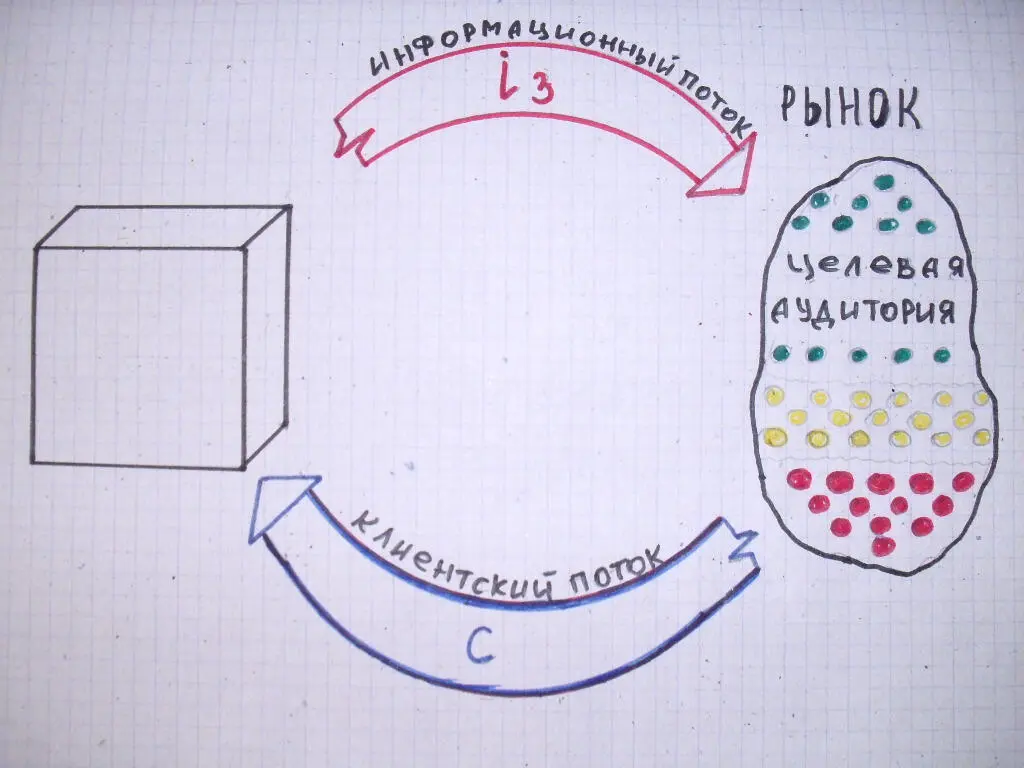 ИНФОРМАЦИОННЫЙ ПОТОК
i з
РЫНОК
ЦЕЛЕВАЯ
АУДИТОРИЯ
КЛИЕНТСКИЙ ПОТОК
С